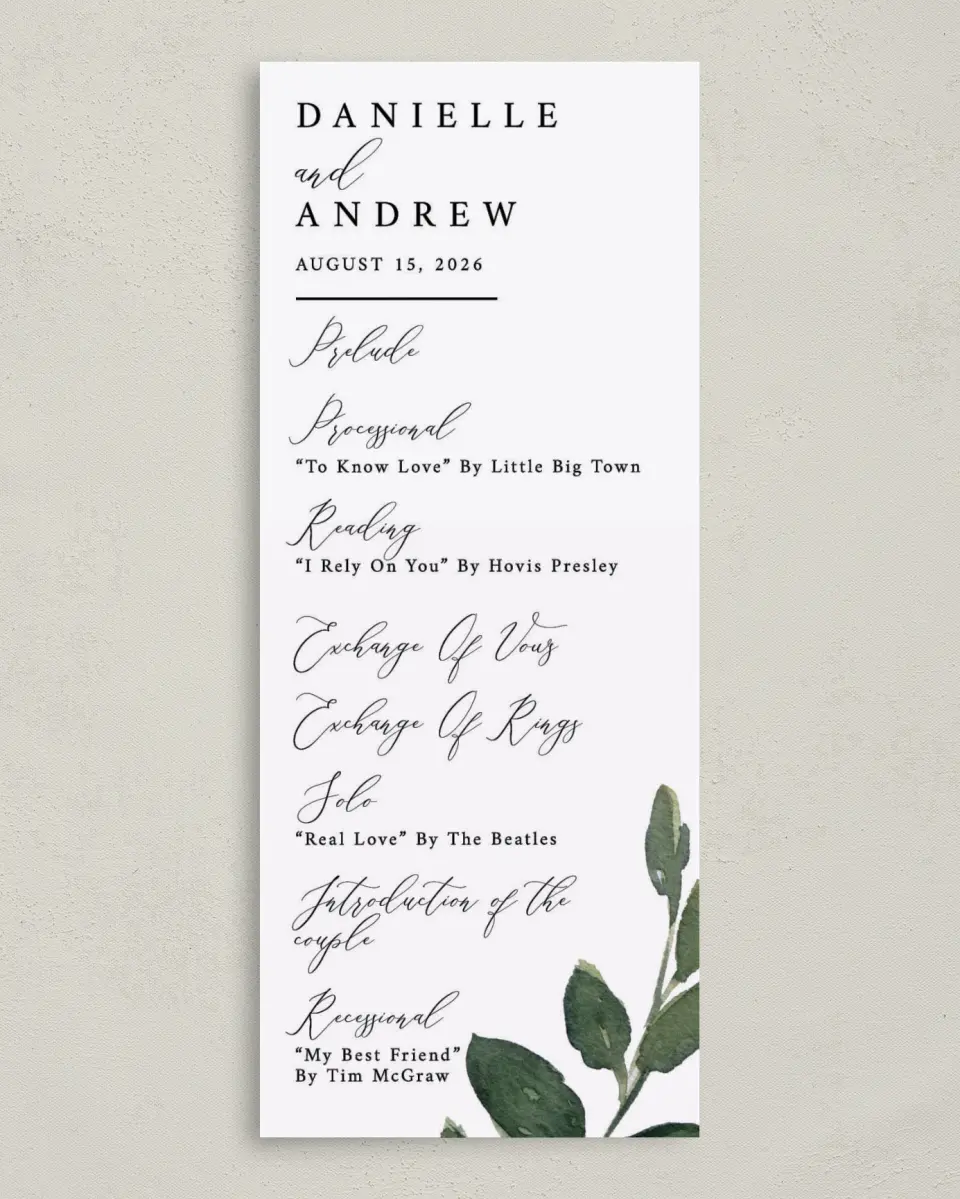 DANIELLE
and
ANDREW
AUGUST 15, 2026
Prelude
Processional
“To Know Love” By Little Big Town
Reading
“I Rely On You” By Hovis Presley
Exchange Of Vows
Exchange Of Rings
Solo
“Real Love” By The Beatles
Introduction of the
couple
Recessional
“My Best Friend”
By Tim McGraw